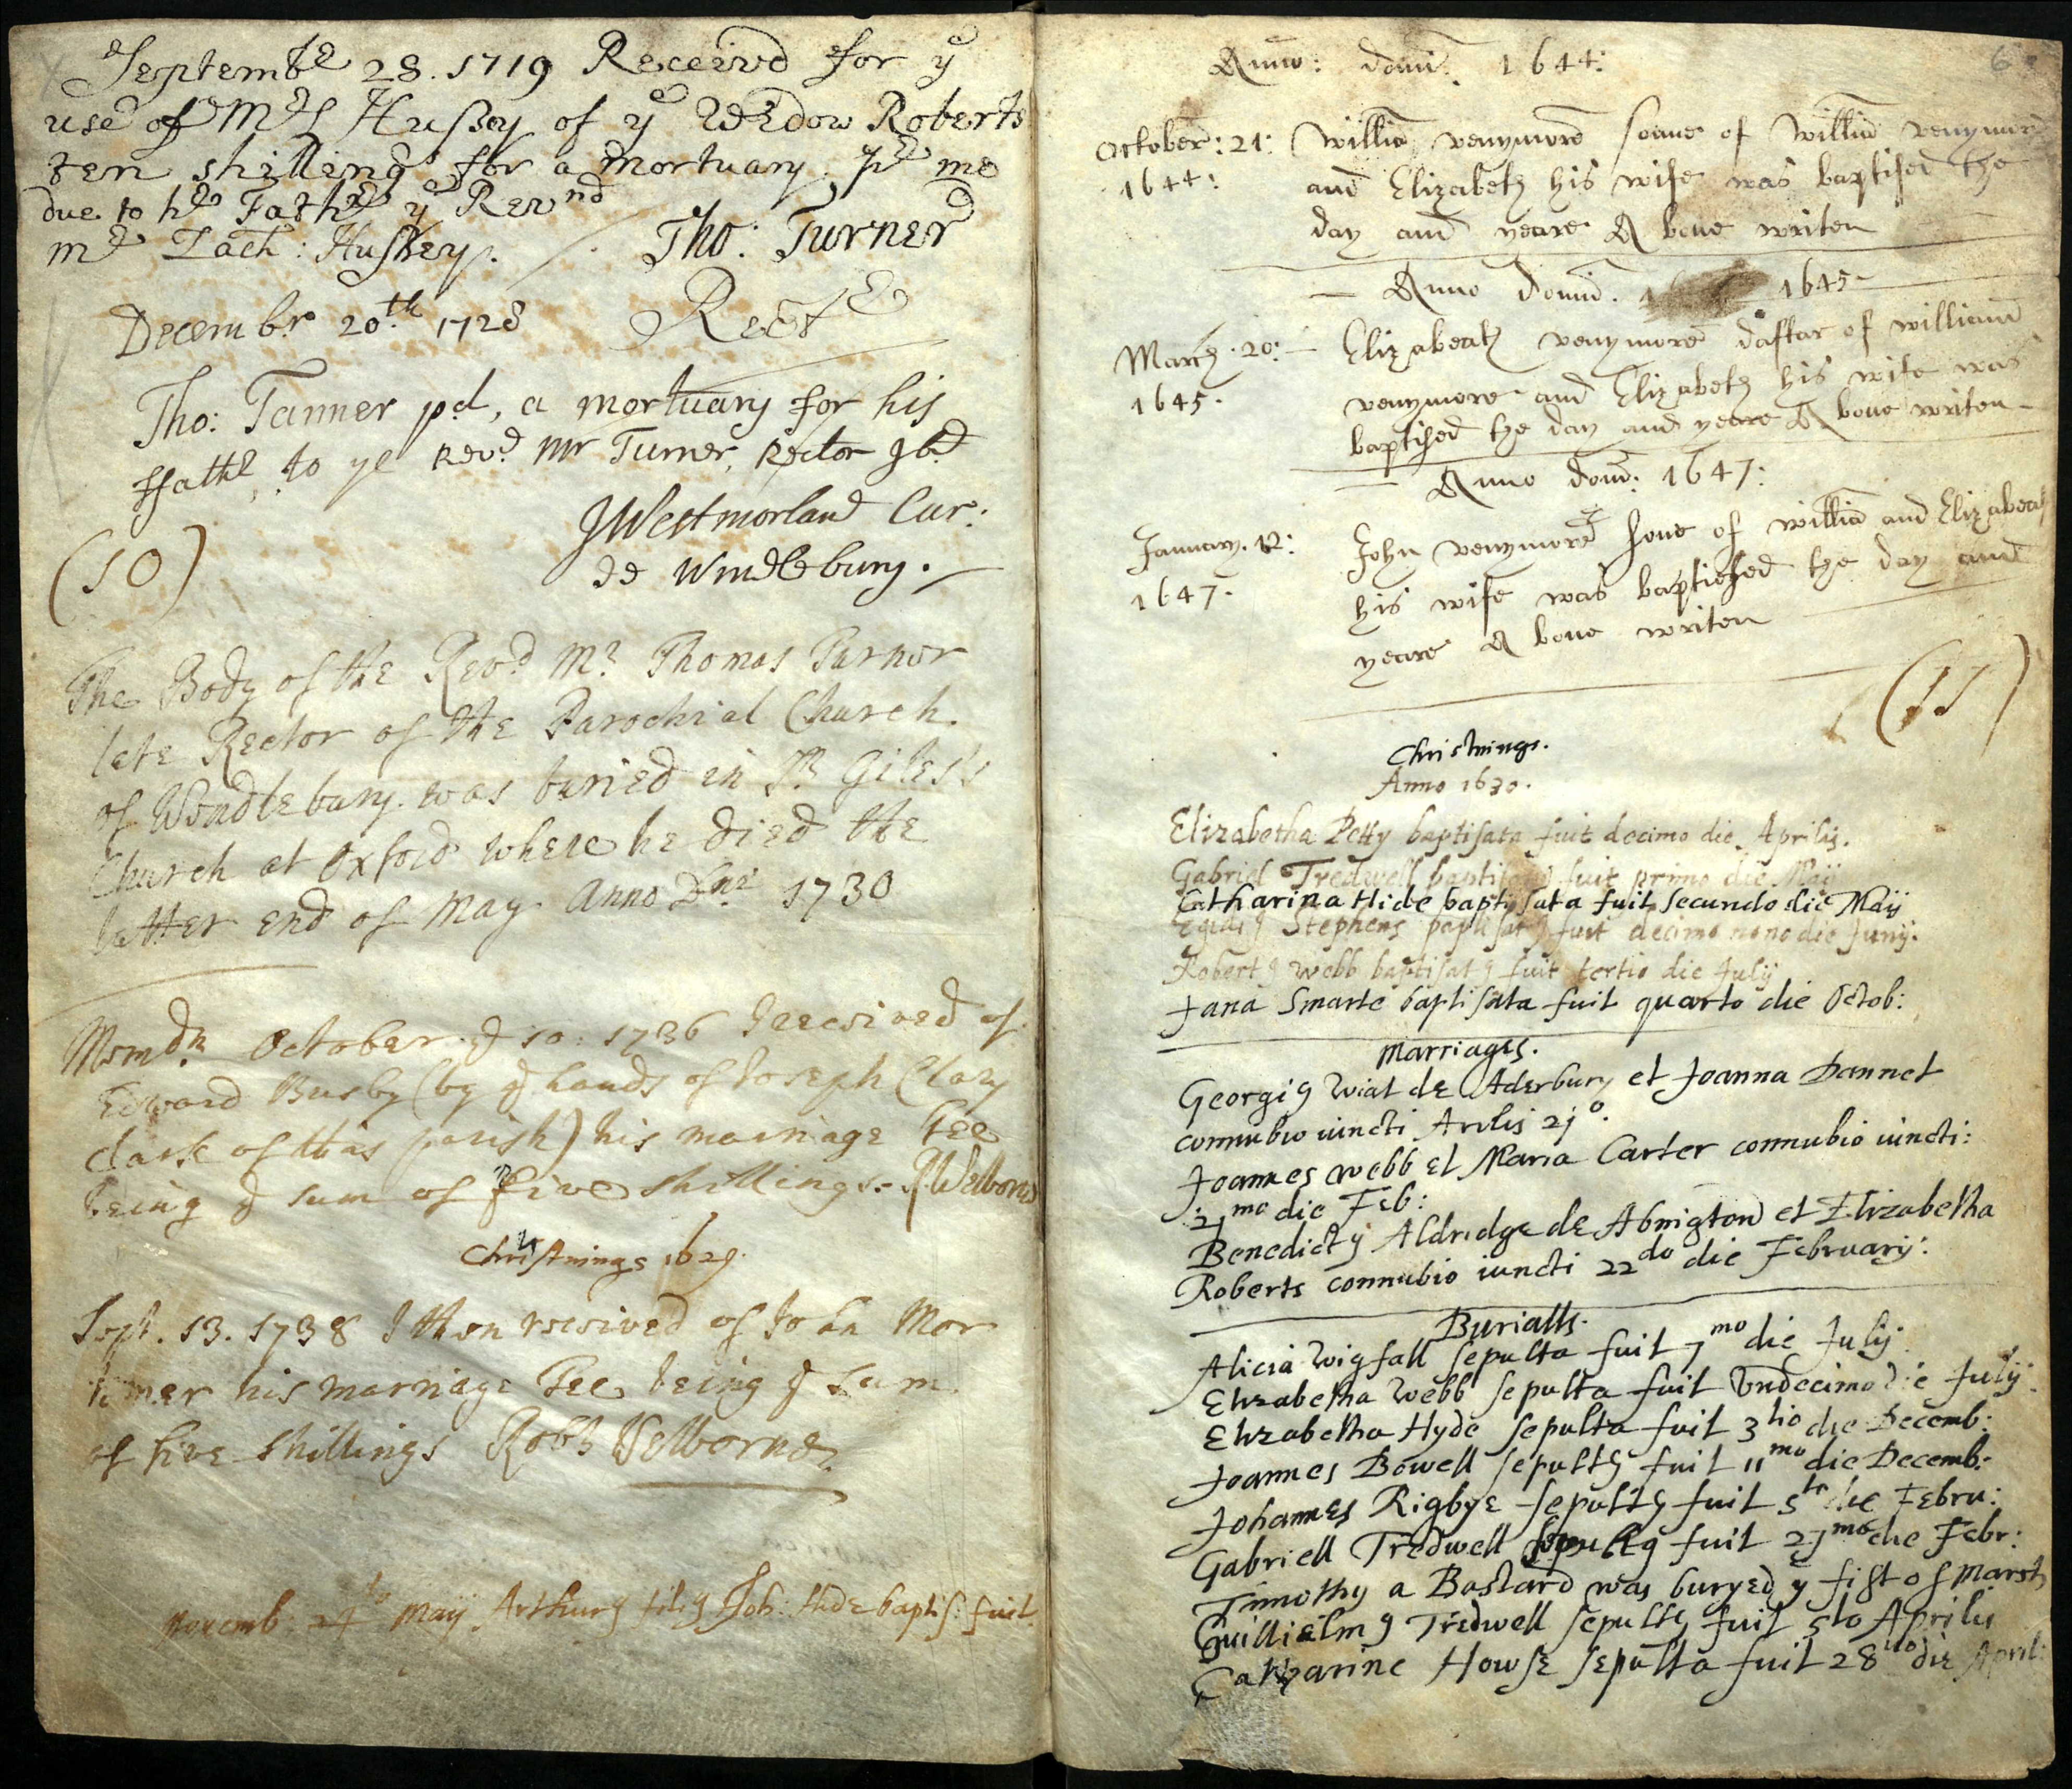 Septembr 28. 1719 Received for ye
use of Mrs Hussey of ye Widow Roberts
ten shillings for a mortuary. Pr me
due to hr Fathr ye Revnd
Mr Zach: Hussey. Tho: Turner
Rectr
Decembr 20th 1728
Tho: Tanner pd, a mortuary for his
ffathr, to ye Revd Mr Turner, Rector Ibd
JWestmorland Cur:
de Wendlebury.
(10)
The Body of the Revd Mr Thomas Turner
late Rector of the Parochial Church
of Wendlebury was buried in St Giles's
Church at Oxford where he died the
latter end of May Anno Dni 1730
Memdm October ye 10: 1736 I received of
Edward Busby (by ye hands of Joseph Clary
clark of this parish) his marriage Fee
being ye sum of five shillings. R Welborne
Christnings 1629.
Sept. 13. 1738 I then received of John Mor
timer his marriage Fee being ye sum
of five shillings Robt Welborne
Novemb: 24to May Arthurꝰ filiꝰ Joh: Hide baptis: fuit.
6
Anno: domi: 1644:
October: 21: Willia venymore sonne of Willia venymore
1644: and Elizabeth his wife was baptised the
day and yeare A bove writen
Anno Domi. 1645
March. 20: Elizabeath venymore daftar of william
1645. venymore and Elizabeth his wife was
baptised the day and yeare A bove writen
Anno dom: 1647:
January. 12: John venymore sone of willia and Elizabeath
1647. his wife was baptiesed the day and
yeare A bove writen
(11)
Christnings.
Anno 1630.
Elizabetha Petty baptisata fuit decimo die Aprilis.
Gabriel Tredwell baptisatꝰ fuit primo die Maij
Catharina Hide baptisata fuit secundo die Maij
Egidiꝰ Stephens baptisatꝰ fuit decimo nono die Junij.
Robertꝰ Webb baptisatꝰ fuit tertio die Julij
Jana Smarte baptisata fuit quarto die Octob:
Marriages.
Georgiꝰ Wiat de Aderbury et Joanna Dannet
connubio iuncti Aprilis 21o.
Joannes Webb et Maria Carter connubio iuncti:
21mo die Feb:
Benedictꝰ Aldridge de Abington et Elizabetha
Roberts connubio iuncti 22do die Februarij:
Burialls.
Alicia Wigfall sepulta fuit 7mo die Julij.
Elizabetha Webb sepulta fuit Vndecimo die Julij.
Elizabetha Hyde sepulta fuit 3tio die Decemb:
Joannes Bowell sepultꝰ fuit 11mo die Decemb:
Johannes Rigbye sepultꝰ fuit 5to die Febru:
Gabriell Tredwell sepultꝰ fuit 27mo die Febr:
Timothy a Bastard was buryed ye fist of Marsh
Guillielmꝰ Tredwell sepultꝰ fuit 5to Aprilis
Catharine Howse sepulta fuit 28uo die April: